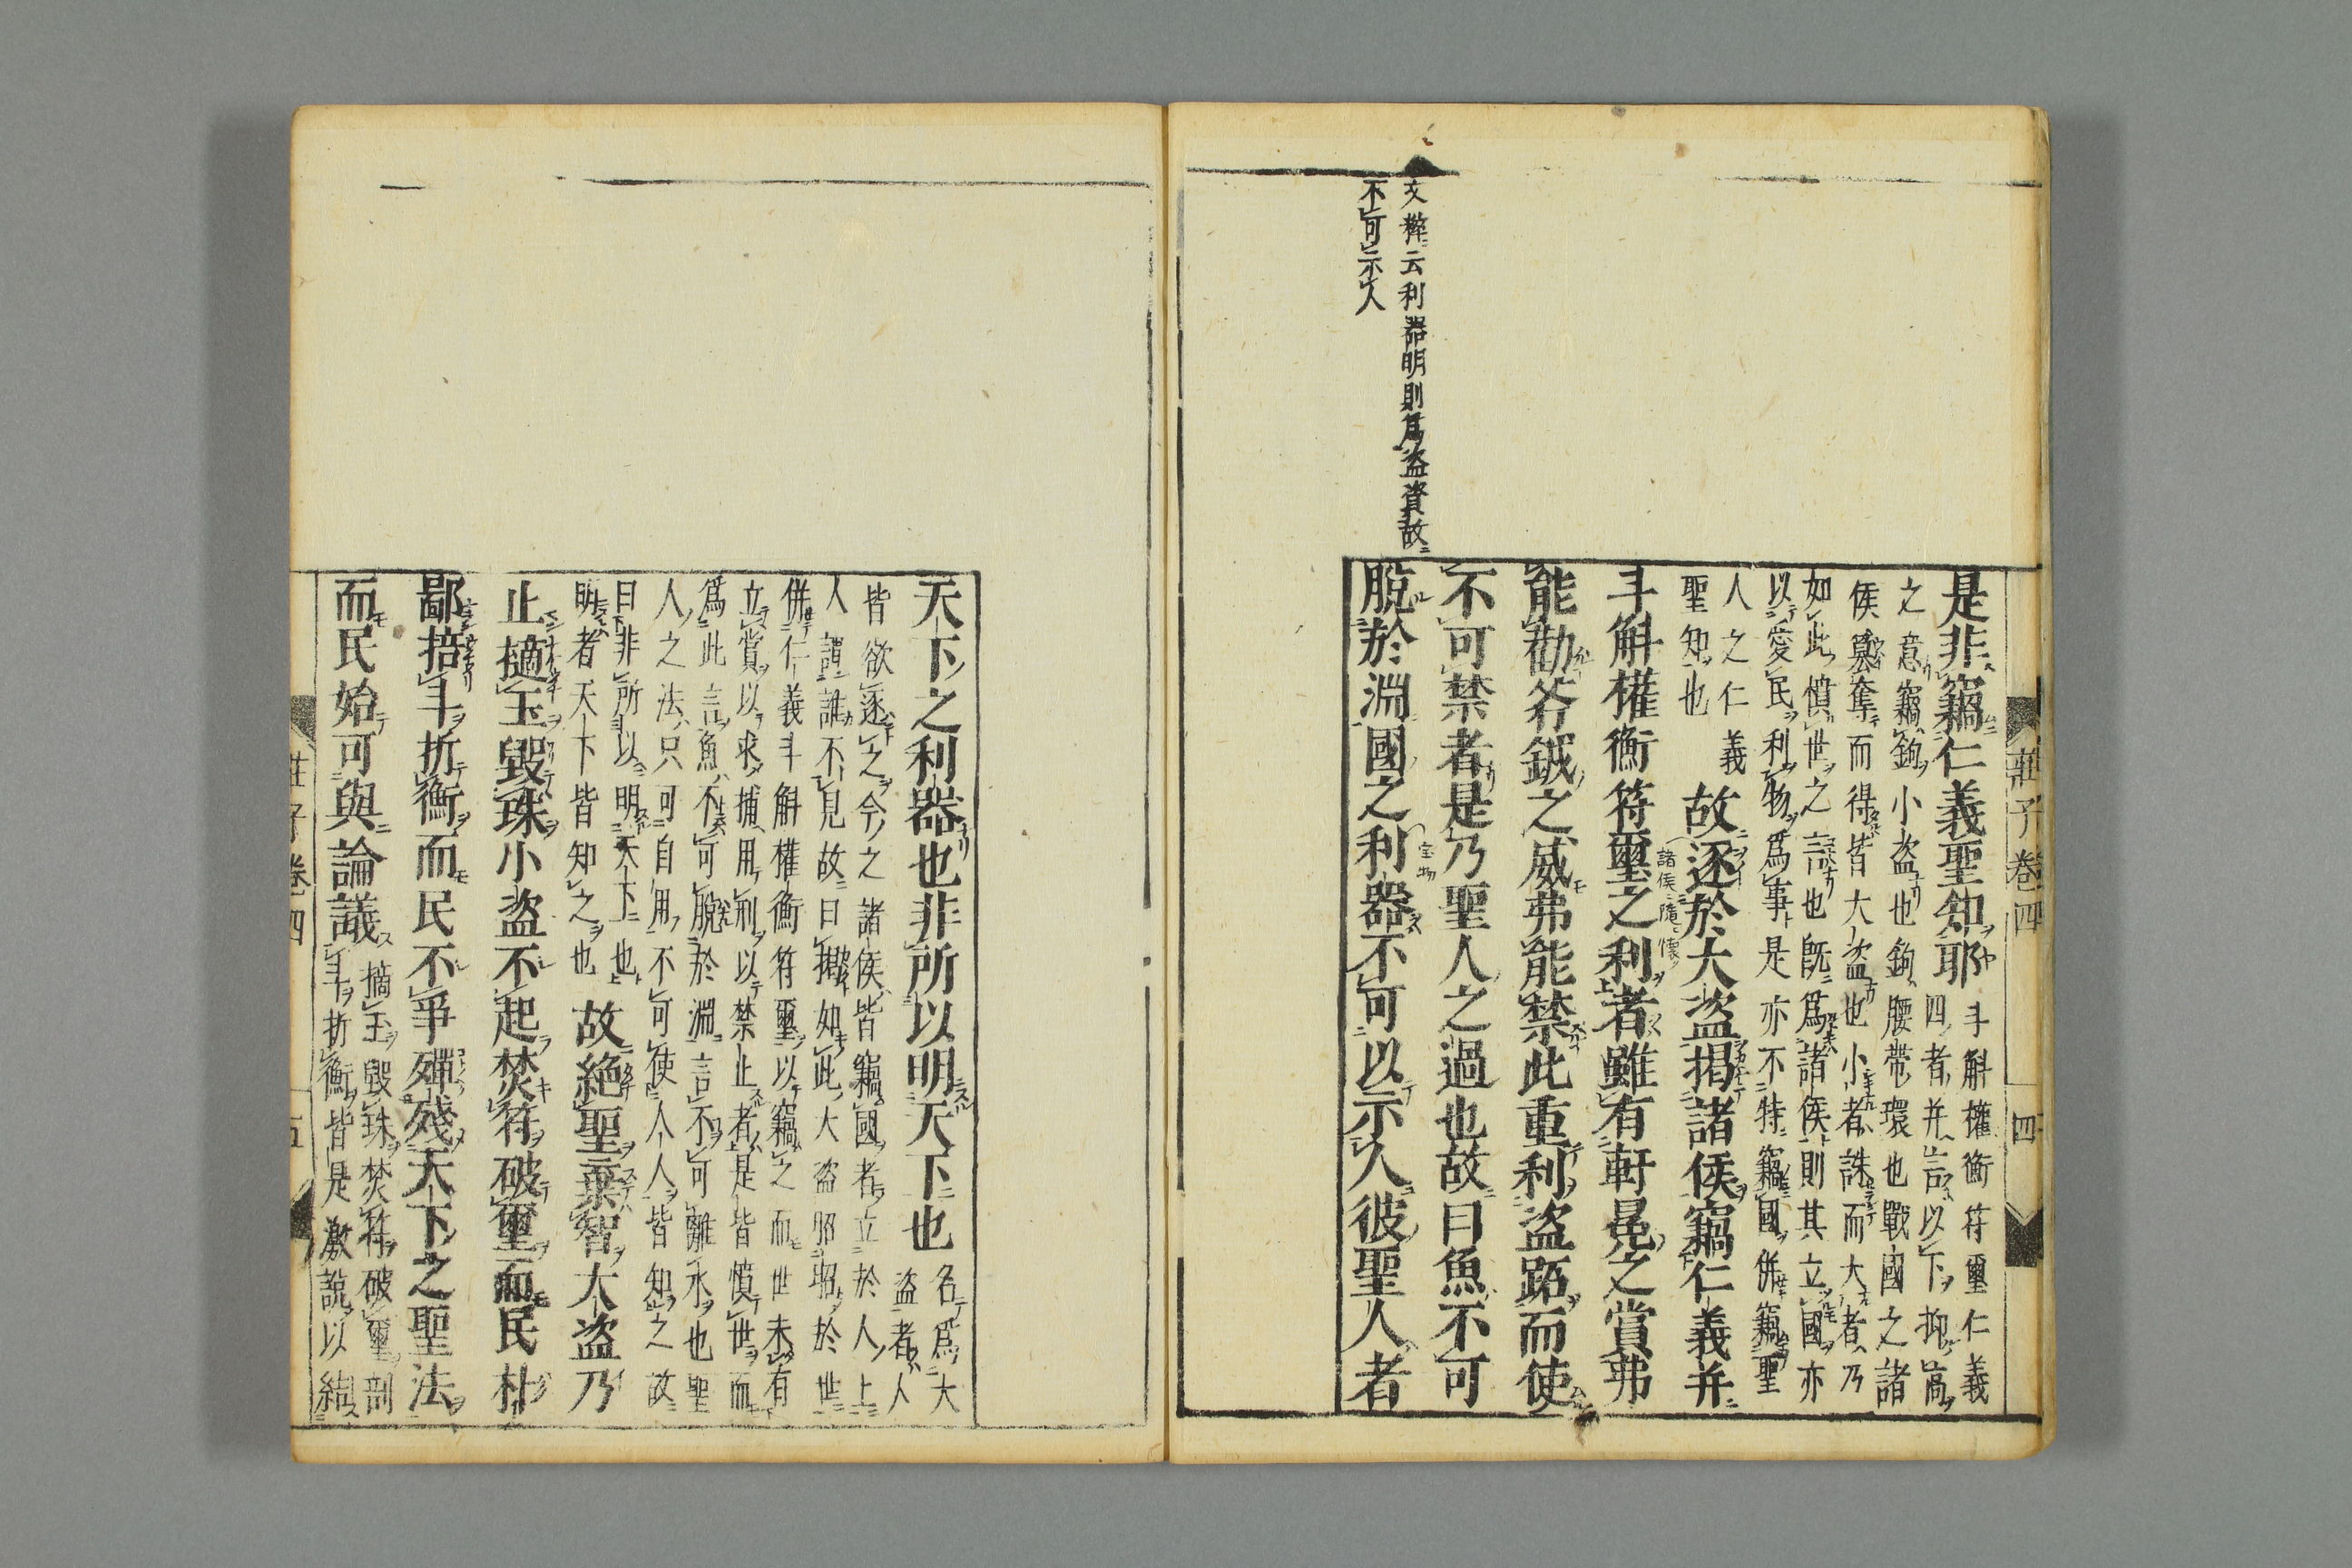 莊子卷四
四
文粹云利器明則爲盜資故
不可示人
是非竊仁義聖知耶
斗斛權衡符璽仁義
四者并言以下抑高
之意竊鉤小盜也鉤腰帶環也戰國之諸
侯簒奪而得皆大盜也小者誅而大者乃
如此憤世之言也既爲諸侯則其立國亦
以愛民利物爲事是亦不特竊國併竊聖
人之仁義
聖知也
故逐於大盜揭諸侯竊仁義并
斗斛權衡符璽之利者雖有軒冕之賞弗
能勸斧鉞之威弗能禁此重利盜跖而使
不可禁者是乃聖人之過也故曰魚不可
脫於淵國之利器不可以示人彼聖人者
天下之利器也非所以明天下也
名爲大
盜者人
皆欲逐之今之諸侯皆竊國者立於人上
人誰不見故曰揭如此大盜昭昭於世
併仁義斗斛權衡符璽以竊之而世未有
立賞以求捕用刑以禁止者是皆憤世而
爲此言魚不可脫於淵言不可離水也聖
人之法只可自用不可使人人皆知之故
曰非所以明天下也
明者天下皆知之也
故絕聖棄智大盜乃
止擿玉毀珠小盜不起焚符破璽而民朴
鄙掊斗折衡而民不爭殫殘天下之聖法
而民始可與論議
摘玉毀珠焚符破璽剖
斗折衡皆是激說以結
莊子卷四
五